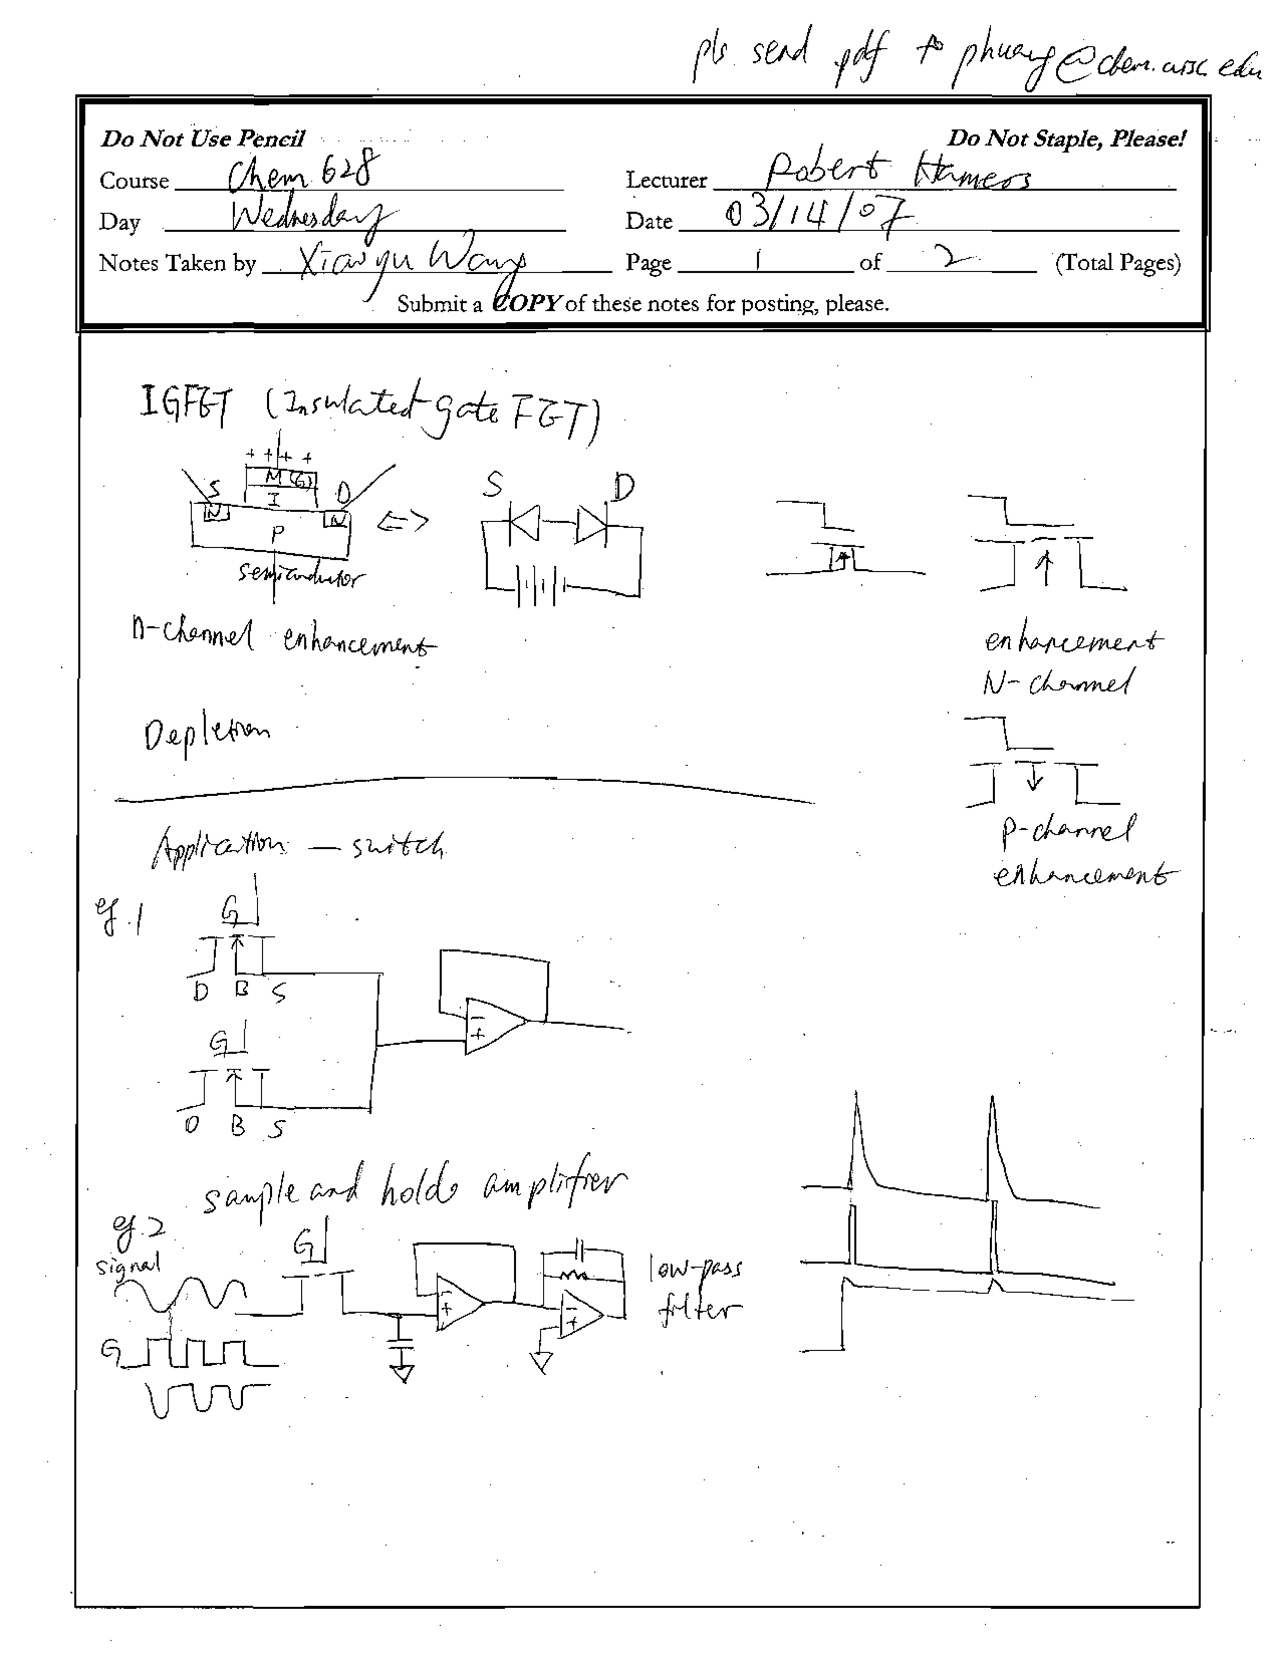 pls send pdf to phuang@chem.wisc.edu
Do Not Use Pencil Do Not Staple, Please!
Course Chem 628 Lecturer Robert Hamers
Day Wednesday Date 03/14/07
Notes Taken by Xiaoyu Wang Page 1 of 2 (Total Pages)
Submit a COPY of these notes for posting, please.
IGFET (Insulated gate FET)
+ + + +
M(G)
S I D
N N
P
semiconductor
S D
n-channel enhancement
enhancement
N-channel
Depletion
P-channel
enhancement
Application — switch
eg.1
G
D B S
G
D B S
- +
sample and hold amplifier
eg.2
signal
G
G
- +
- +
low-pass
filter